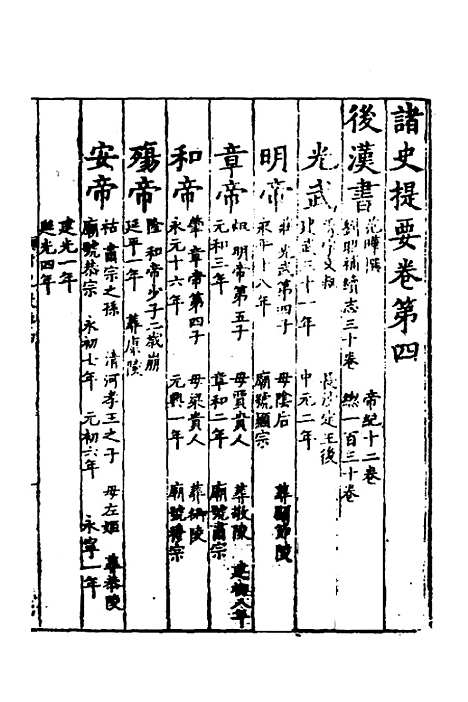 諸史提要卷第四
後漢書
范曄撰
帝紀十二卷
劉昭補續志三十卷
總一百三十卷
光武
字文叔
長沙定王後
建武三十一年
中元二年
明帝
莊光武第四子
母陰后
葬顯節陵
永平十八年
廟號顯宗
章帝
炟明帝第五子
母賈貴人
葬敬陵
建初八年
元和三年
章和二年
廟號肅宗
和帝
肇章帝第四子
母梁貴人
葬慎陵
永元十六年
元興一年
廟號穆宗
殤帝
隆和帝少子二歲崩
延平一年
葬康陵
安帝
祜肅宗之孫
清河孝王之子
母左姬
葬恭陵
廟號恭宗
永初七年
元初六年
永寧一年
建光一年
延光四年